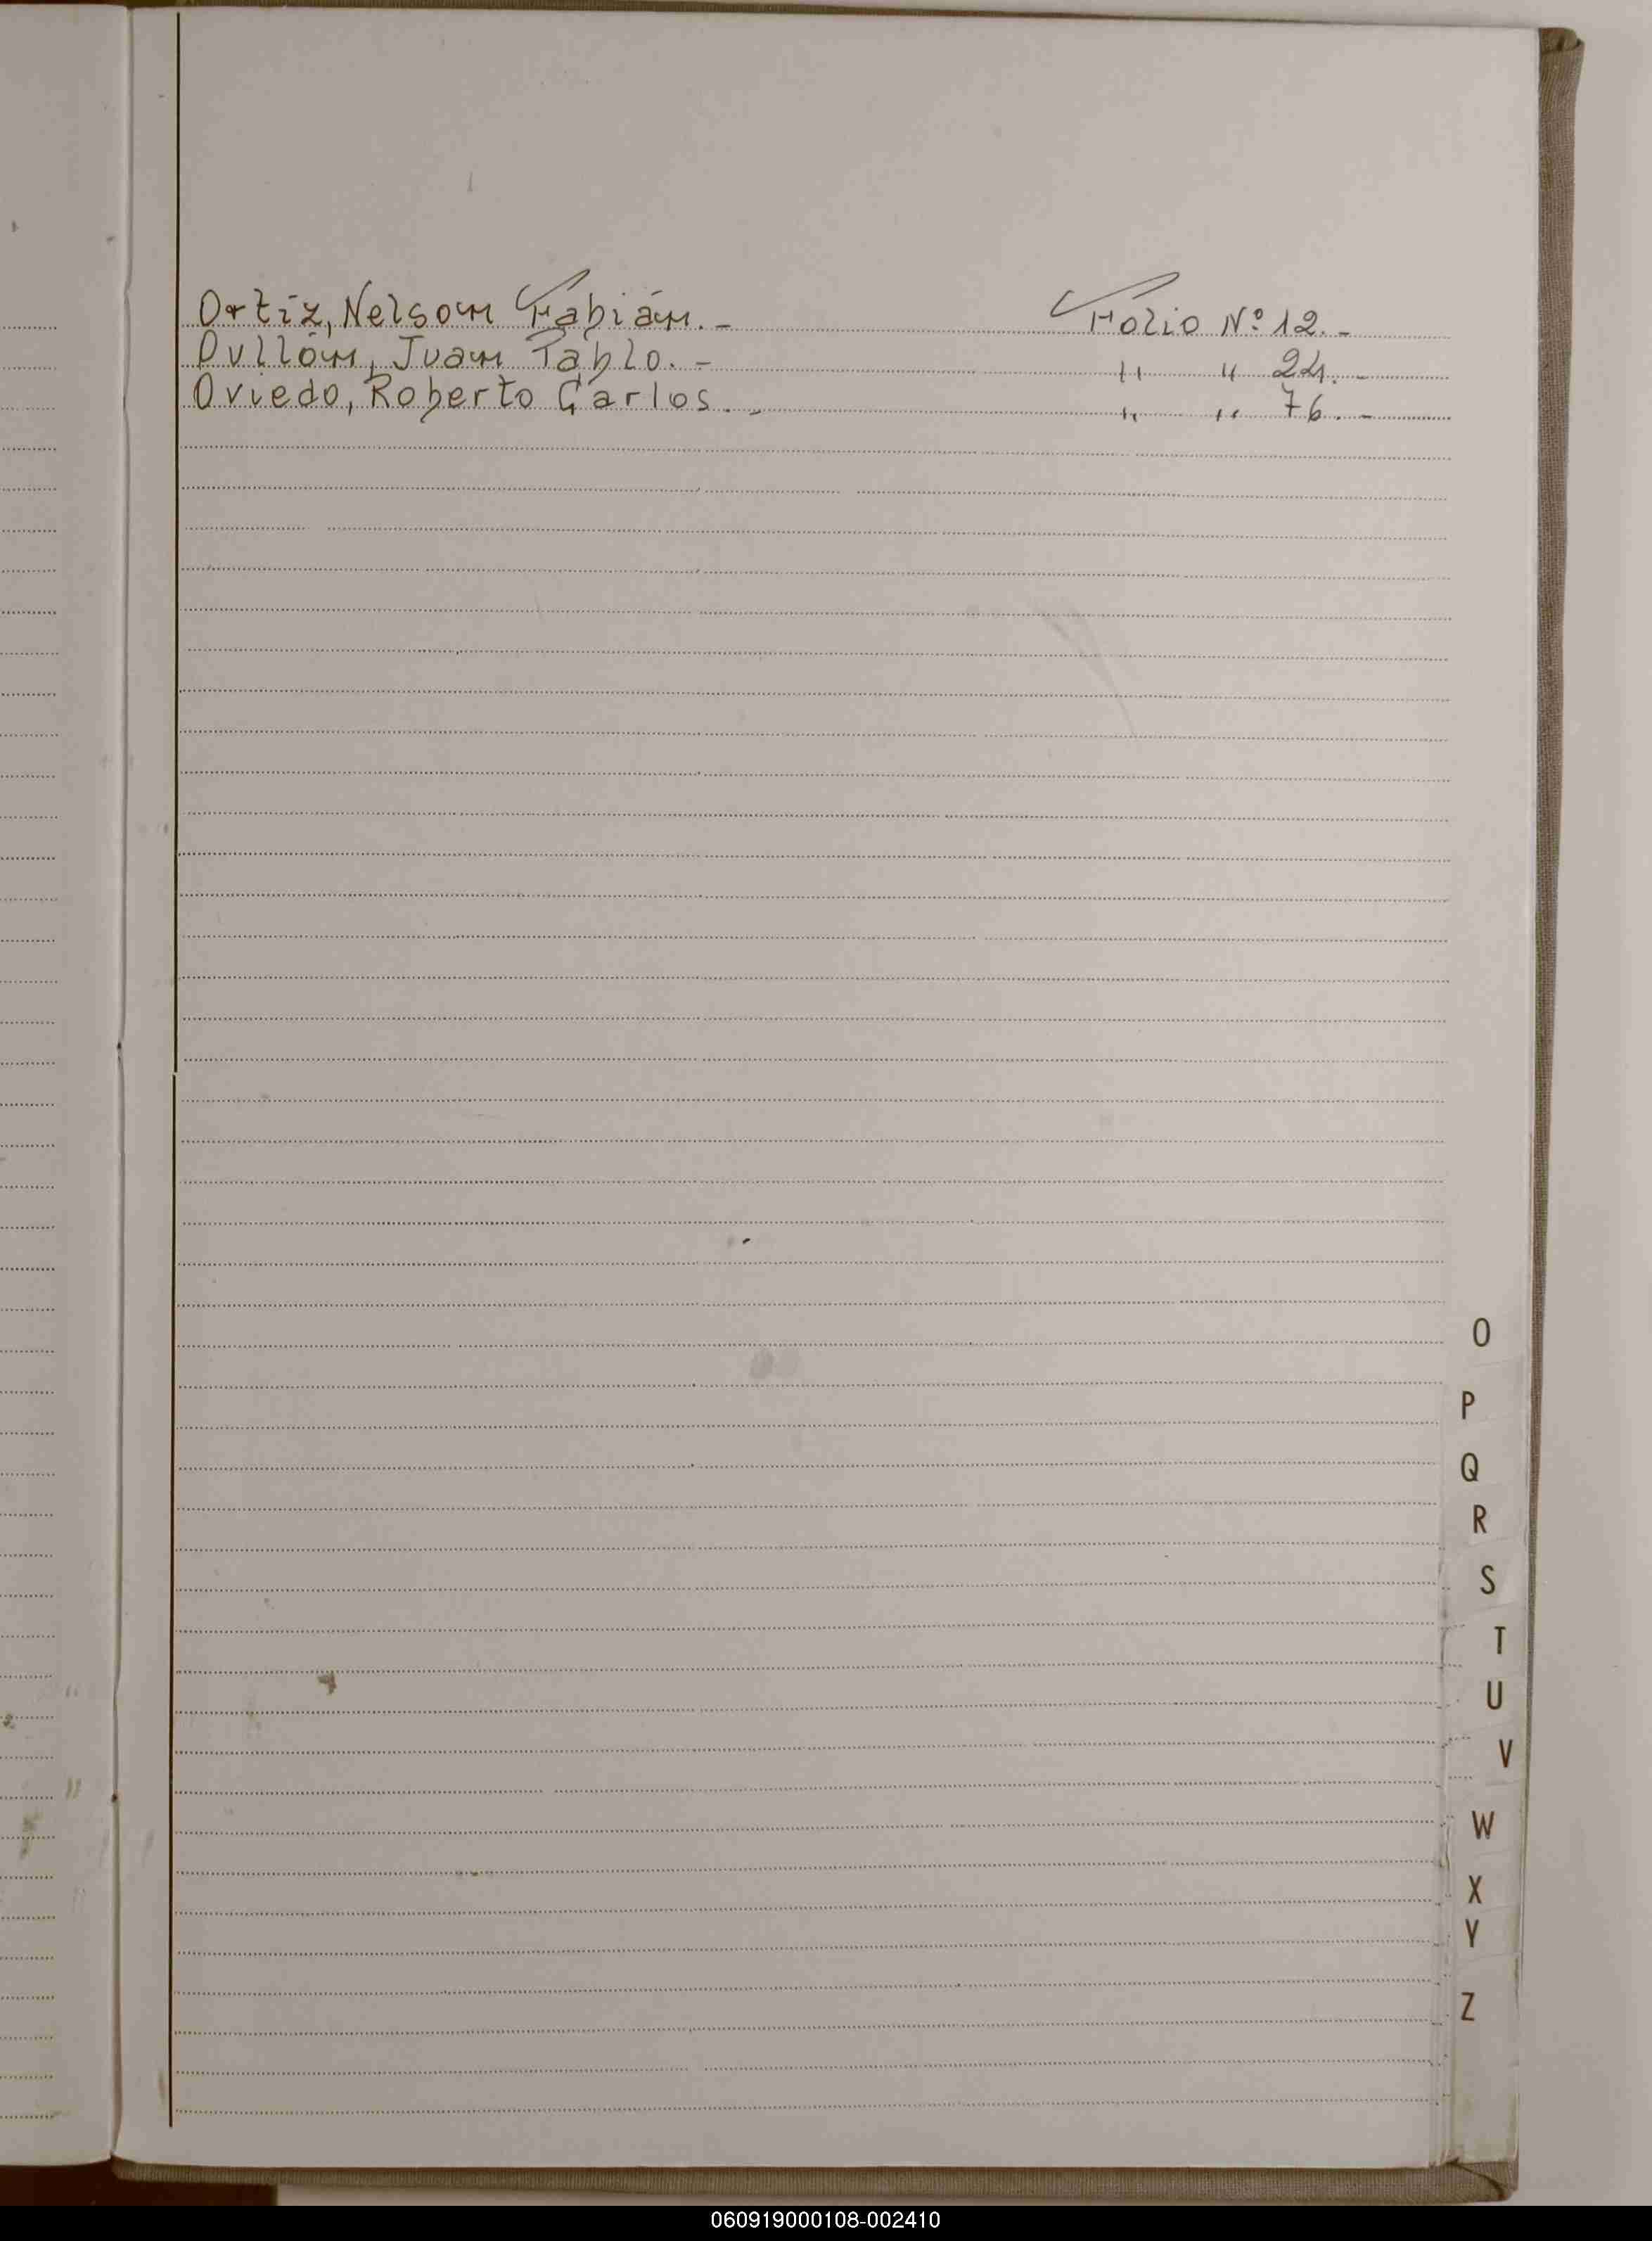 Ortíz, Nelson Fabián.- Folio Nº 12.-
Ovllón, Juan Pablo.- " " 24.-
Oviedo, Roberto Carlos.- " " 76.-
O
P
Q
R
S
T
U
V
W
X
Y
Z
060919000108-002410